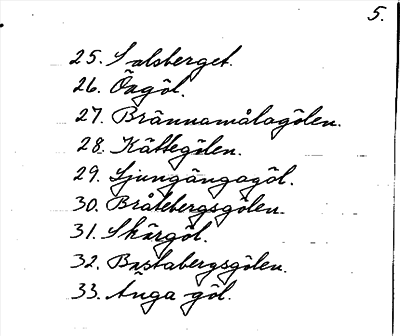 5.
25. Salsberget.
26. Öxgöl.
27. Brännamålagölen.
28. Kättegölen.
29. Ljungängagöl.
30. Bråtebergsgölen.
31. Skärgöl.
32. Bastabergsgölen.
33. Änga göl.